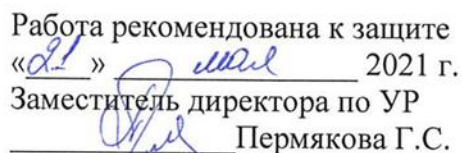 Работа рекомендована к защите
«21» мая 2021 г.
Заместитель директора по УР
Пермякова Г.С.